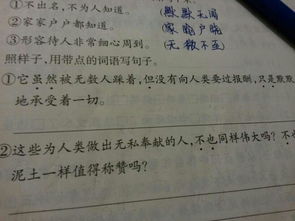 ①不出名，不为人知道。（默默无闻）
②家家户户都知道。（家喻户晓）
③形容待人非常细心周到。（无微不至）
照样子，用带点的词语写句子。
①它虽然被无数人踩着，但没有向人类要过报酬，只是默默
地承受着一切。
②这些为人类做出无私奉献的人，不也同样伟大吗？不
泥土一样值得称赞吗？